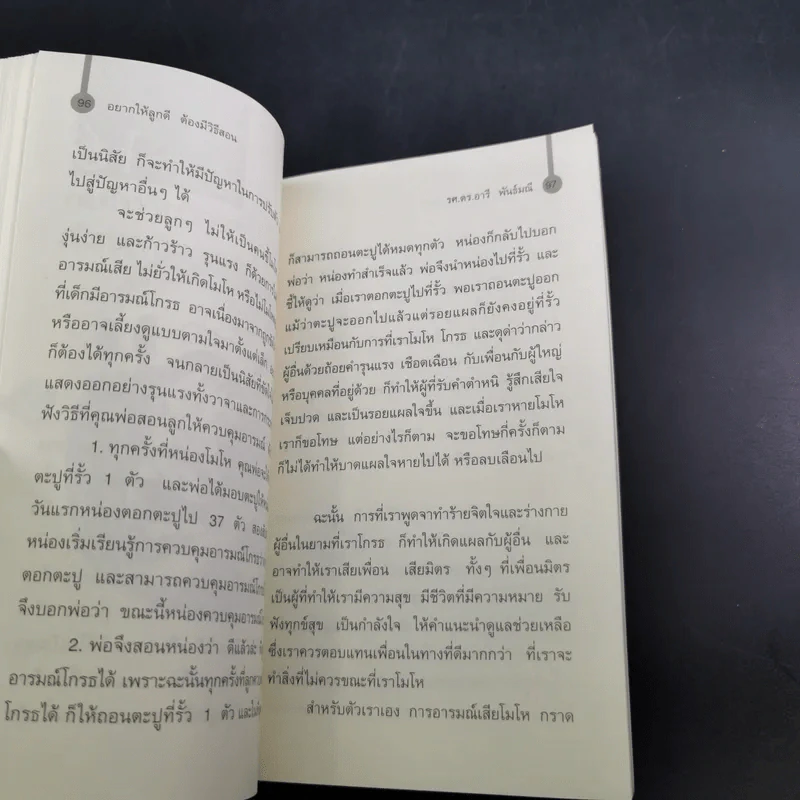 96
อยากให้ลูกดี ต้องมีวิธีสอน
เป็นนิสัย ก็จะทำให้มีปัญหาในการปรับ
ไปสู่ปัญหาอื่นๆ ได้
จะช่วยลูกๆ ไม่ให้เป็นคนขี้
งุ่นง่าย และก้าวร้าว รุนแรง ก็ด้วย
อารมณ์เสีย ไม่ยั่วให้เกิดโมโห หรือ
ที่เด็กมีอารมณ์โกรธ อาจเนื่องมาจาก
หรืออาจเลี้ยงดูแบบตามใจมาตั้งแต่เด็ก
ก็ต้องได้ทุกครั้ง จนกลายเป็นนิสัยที่
แสดงออกอย่างรุนแรงทั้งวาจาและการ
ฟังวิธีที่คุณพ่อสอนลูกให้ควบคุมอารมณ์
1. ทุกครั้งที่หน่องโมโห คุณพ่อ
ตะปูที่รั้ว 1 ตัว และพ่อได้มอบตะปูให้
วันแรกหน่องตอกตะปูไป 37 ตัว
หน่องเริ่มเรียนรู้การควบคุมอารมณ์โกรธ
ตอกตะปู และสามารถควบคุมอารมณ์โกรธ
จึงบอกพ่อว่า ขณะนี้หน่องควบคุมอารมณ์
2. พ่อจึงสอนหน่องว่า ดีแล้วล่ะ
อารมณ์โกรธได้ เพราะฉะนั้นทุกครั้งที่ลูก
โกรธได้ ก็ให้ถอนตะปูที่รั้ว 1 ตัว และ
รศ.ดร.อารี พันธ์มณี
97
ก็สามารถถอนตะปูได้หมดทุกตัว หน่องก็กลับไปบอก
พ่อว่า หน่องทำสำเร็จแล้ว พ่อจึงนำหน่องไปที่รั้ว และ
ชี้ให้ดูว่า เมื่อเราตอกตะปูไปที่รั้ว พอเราถอนตะปูออก
แม้ว่าตะปูจะออกไปแล้วแต่รอยแผลก็ยังคงอยู่ที่รั้ว
เปรียบเหมือนกับการที่เราโมโห โกรธ และดุด่าว่ากล่าว
ผู้อื่นด้วยถ้อยคำรุนแรง เชือดเฉือน กับเพื่อนกับผู้ใหญ่
หรือบุคคลที่อยู่ด้วย ก็ทำให้ผู้ที่รับคำตำหนิ รู้สึกเสียใจ
เจ็บปวด และเป็นรอยแผลใจขึ้น และเมื่อเราหายโมโห
เราก็ขอโทษ แต่อย่างไรก็ตาม จะขอโทษกี่ครั้งก็ตาม
ก็ไม่ได้ทำให้บาดแผลใจหายไปได้ หรือลบเลือนไป
ฉะนั้น การที่เราพูดจาทำร้ายจิตใจและร่างกาย
ผู้อื่นในยามที่เราโกรธ ก็ทำให้เกิดแผลกับผู้อื่น และ
อาจทำให้เราเสียเพื่อน เสียมิตร ทั้งๆ ที่เพื่อนมิตร
เป็นผู้ที่ทำให้เรามีความสุข มีชีวิตที่มีความหมาย รับ
ฟังทุกข์สุข เป็นกำลังใจ ให้คำแนะนำดูแลช่วยเหลือ
ซึ่งเราควรตอบแทนเพื่อนในทางที่ดีมากกว่า ที่เราจะ
ทำสิ่งที่ไม่ควรขณะที่เราโมโห
สำหรับตัวเราเอง การอารมณ์เสียโมโห กราด